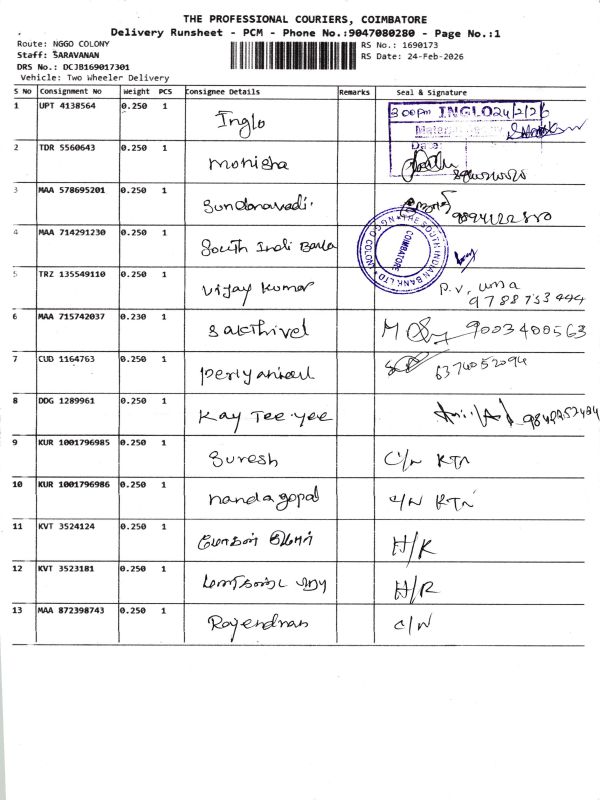 THE PROFESSIONAL COURIERS, COIMBATORE
Delivery Runsheet - PCM - Phone No.:9047080280 - Page No.:1
Route: NGGO COLONY
RS No.: 1690173
Staff: SARAVANAN
RS Date: 24-Feb-2026
DRS No.: DCJB169017301
Vehicle: Two Wheeler Delivery
S No Consignment No Weight PCS Consignee Details Remarks Seal & Signature
1 UPT 4138564 0.250 1 Inglo 3 00pm INGLO 24/2/26
Date
2 TDR 5560643 0.250 1 Monisha
3 MAA 578695201 0.250 1
4 MAA 714291230 0.250 1 South Indi THE SOUTH INDIAN BANK LTD NGGO COLONY COIMBATORE
5 TRZ 135549110 0.250 1 Vijay Kumar P.V. uma
9788753444
6 MAA 715742037 0.230 1 Sakthivel 9003400563
7 CUD 1164763 0.250 1 6374052094
8 DDG 1289961 0.250 1 Kay Tee yee
9 KUR 1001796985 0.250 1 Suresh C/N KTN
10 KUR 1001796986 0.250 1 nandagopal C/N KTN
11 KVT 3524124 0.250 1 H/K
12 KVT 3523181 0.250 1 H/R
13 MAA 872398743 0.250 1 Rajendran C/N